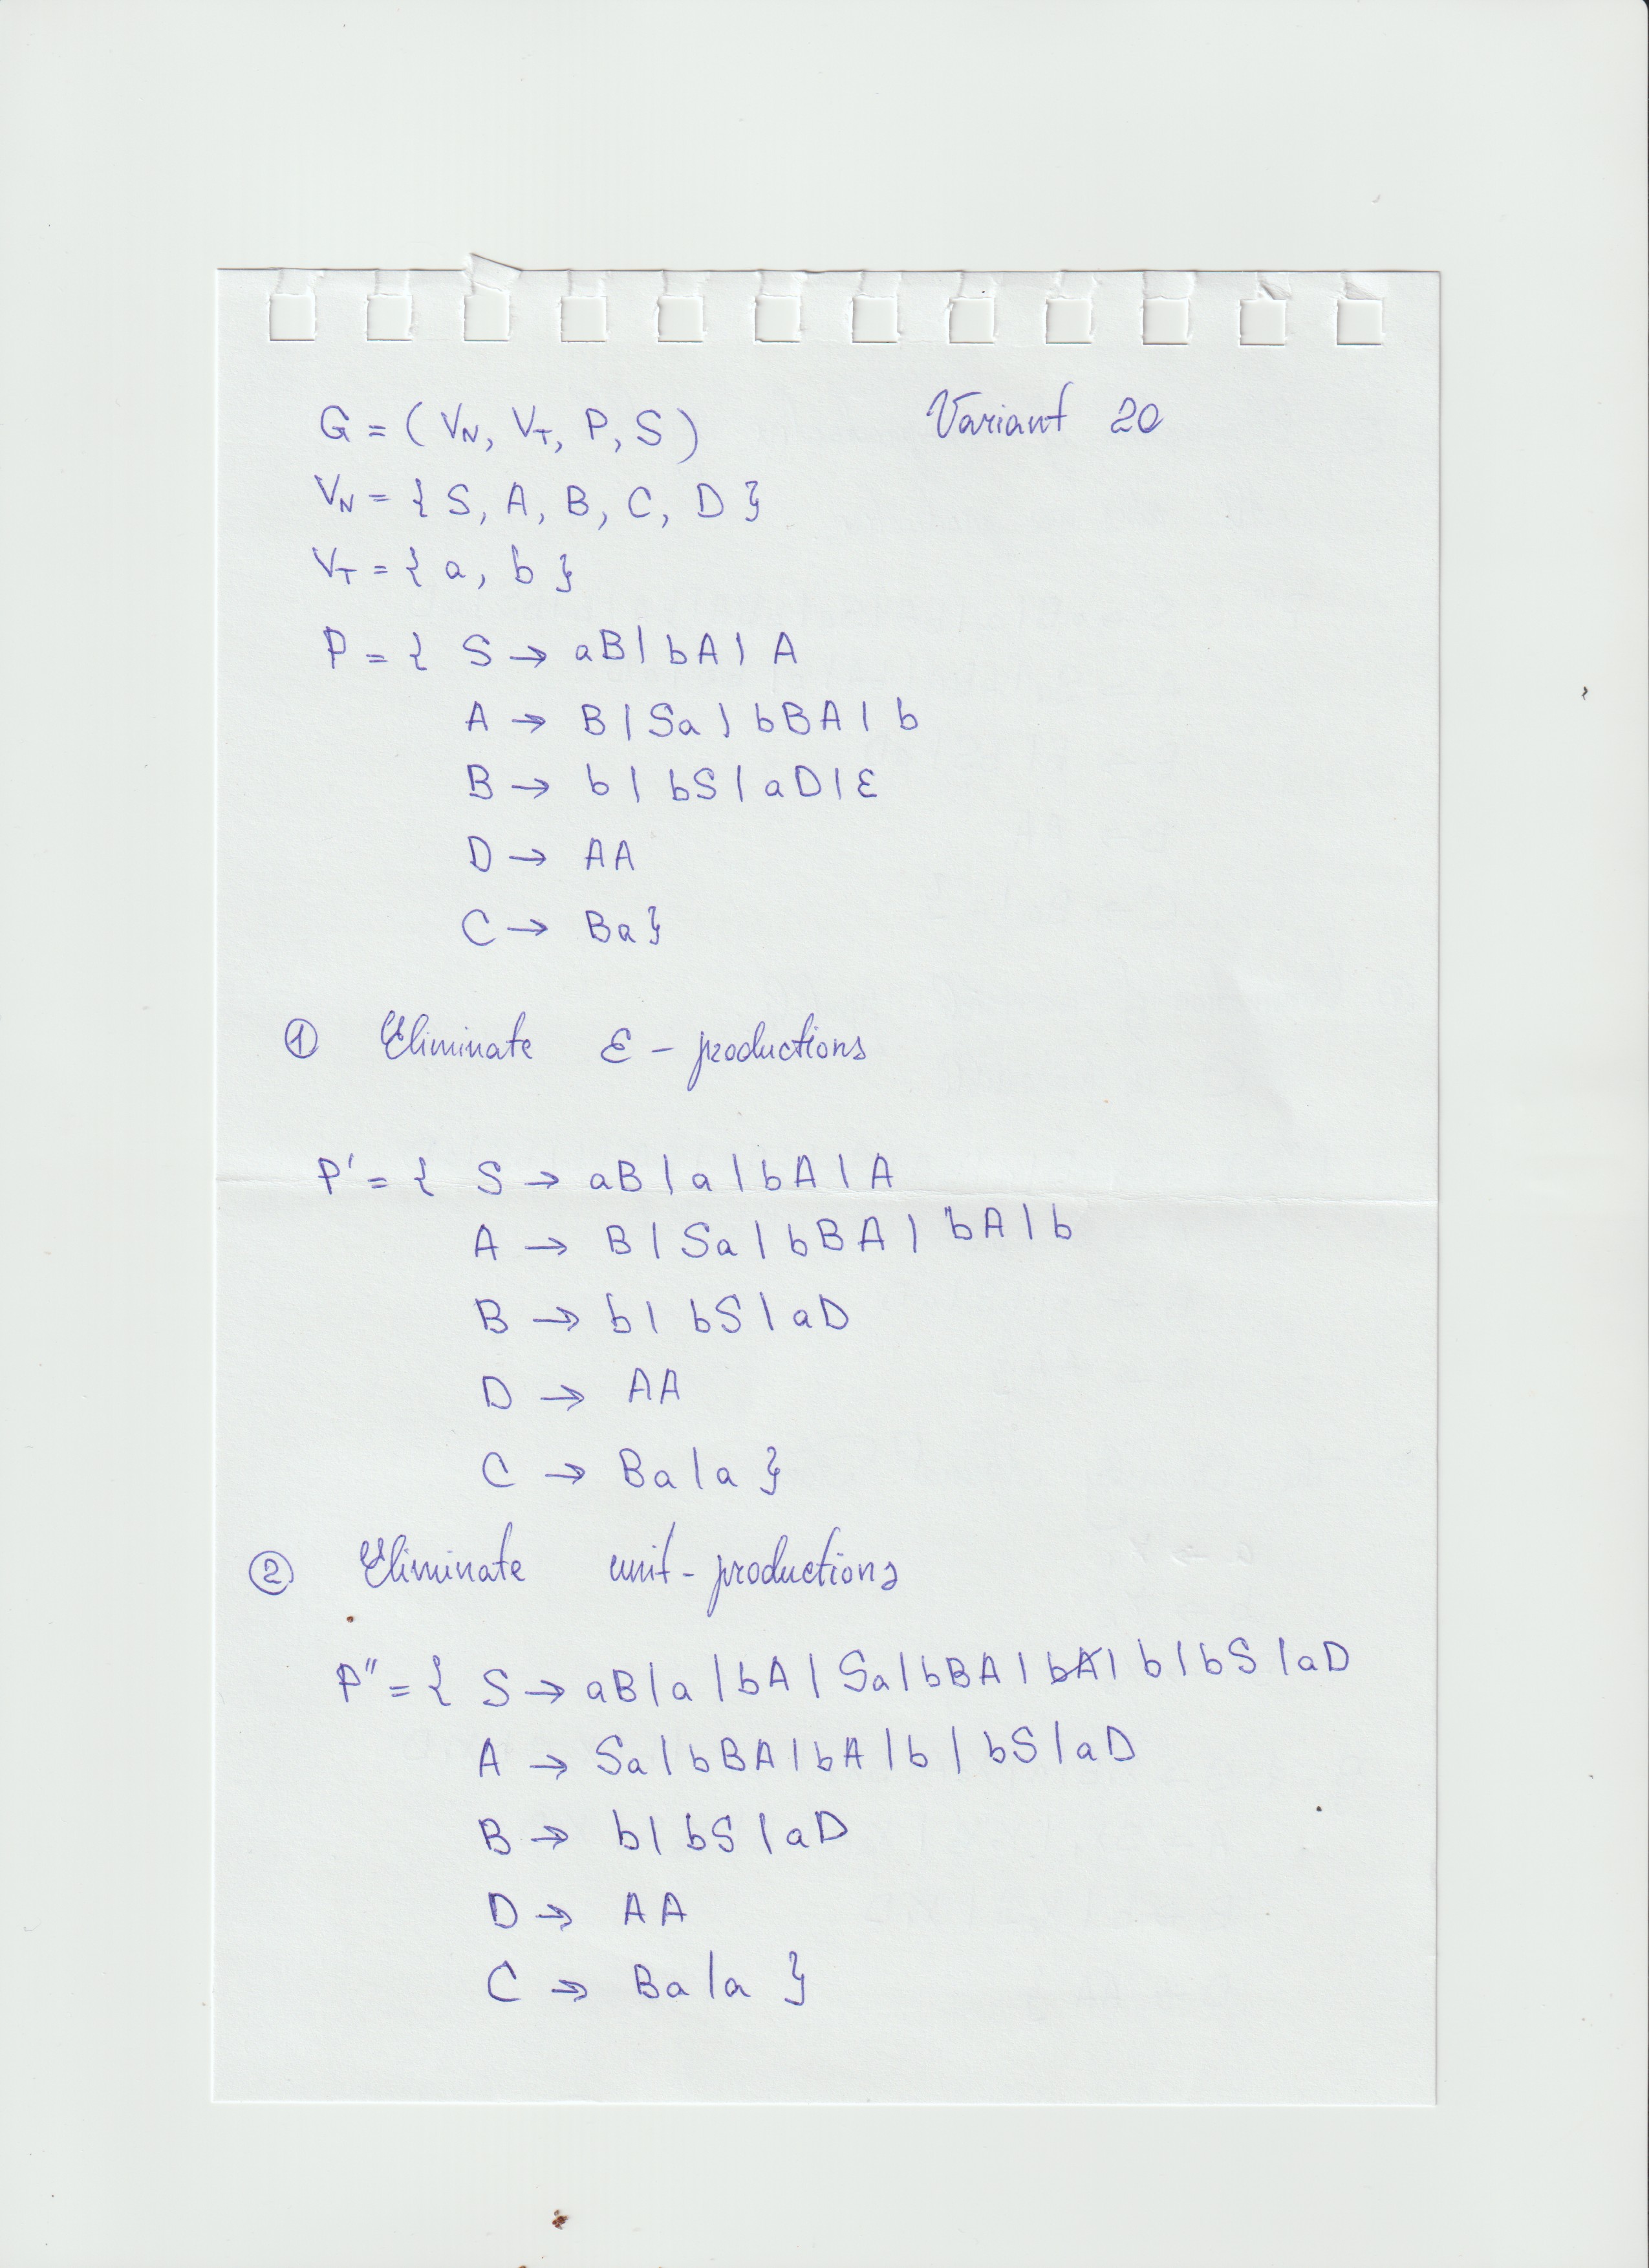 G = ( VN, VT, P, S ) Variant 20
VN = { S, A, B, C, D }
VT = { a, b }
P = { S → aB | bA | A
A → B | Sa | bBA | b
B → b | bS | aD | ε
D → AA
C → Ba }
① Eliminate ε - productions
P' = { S → aB | a | bA | A
A → B | Sa | bBA | bA | b
B → b | bS | aD
D → AA
C → Ba | a }
② Eliminate unit - productions
P'' = { S → aB | a | bA | Sa | bBA | bA | b | bS | aD
A → Sa | bBA | bA | b | bS | aD
B → b | bS | aD
D → AA
C → Ba | a }